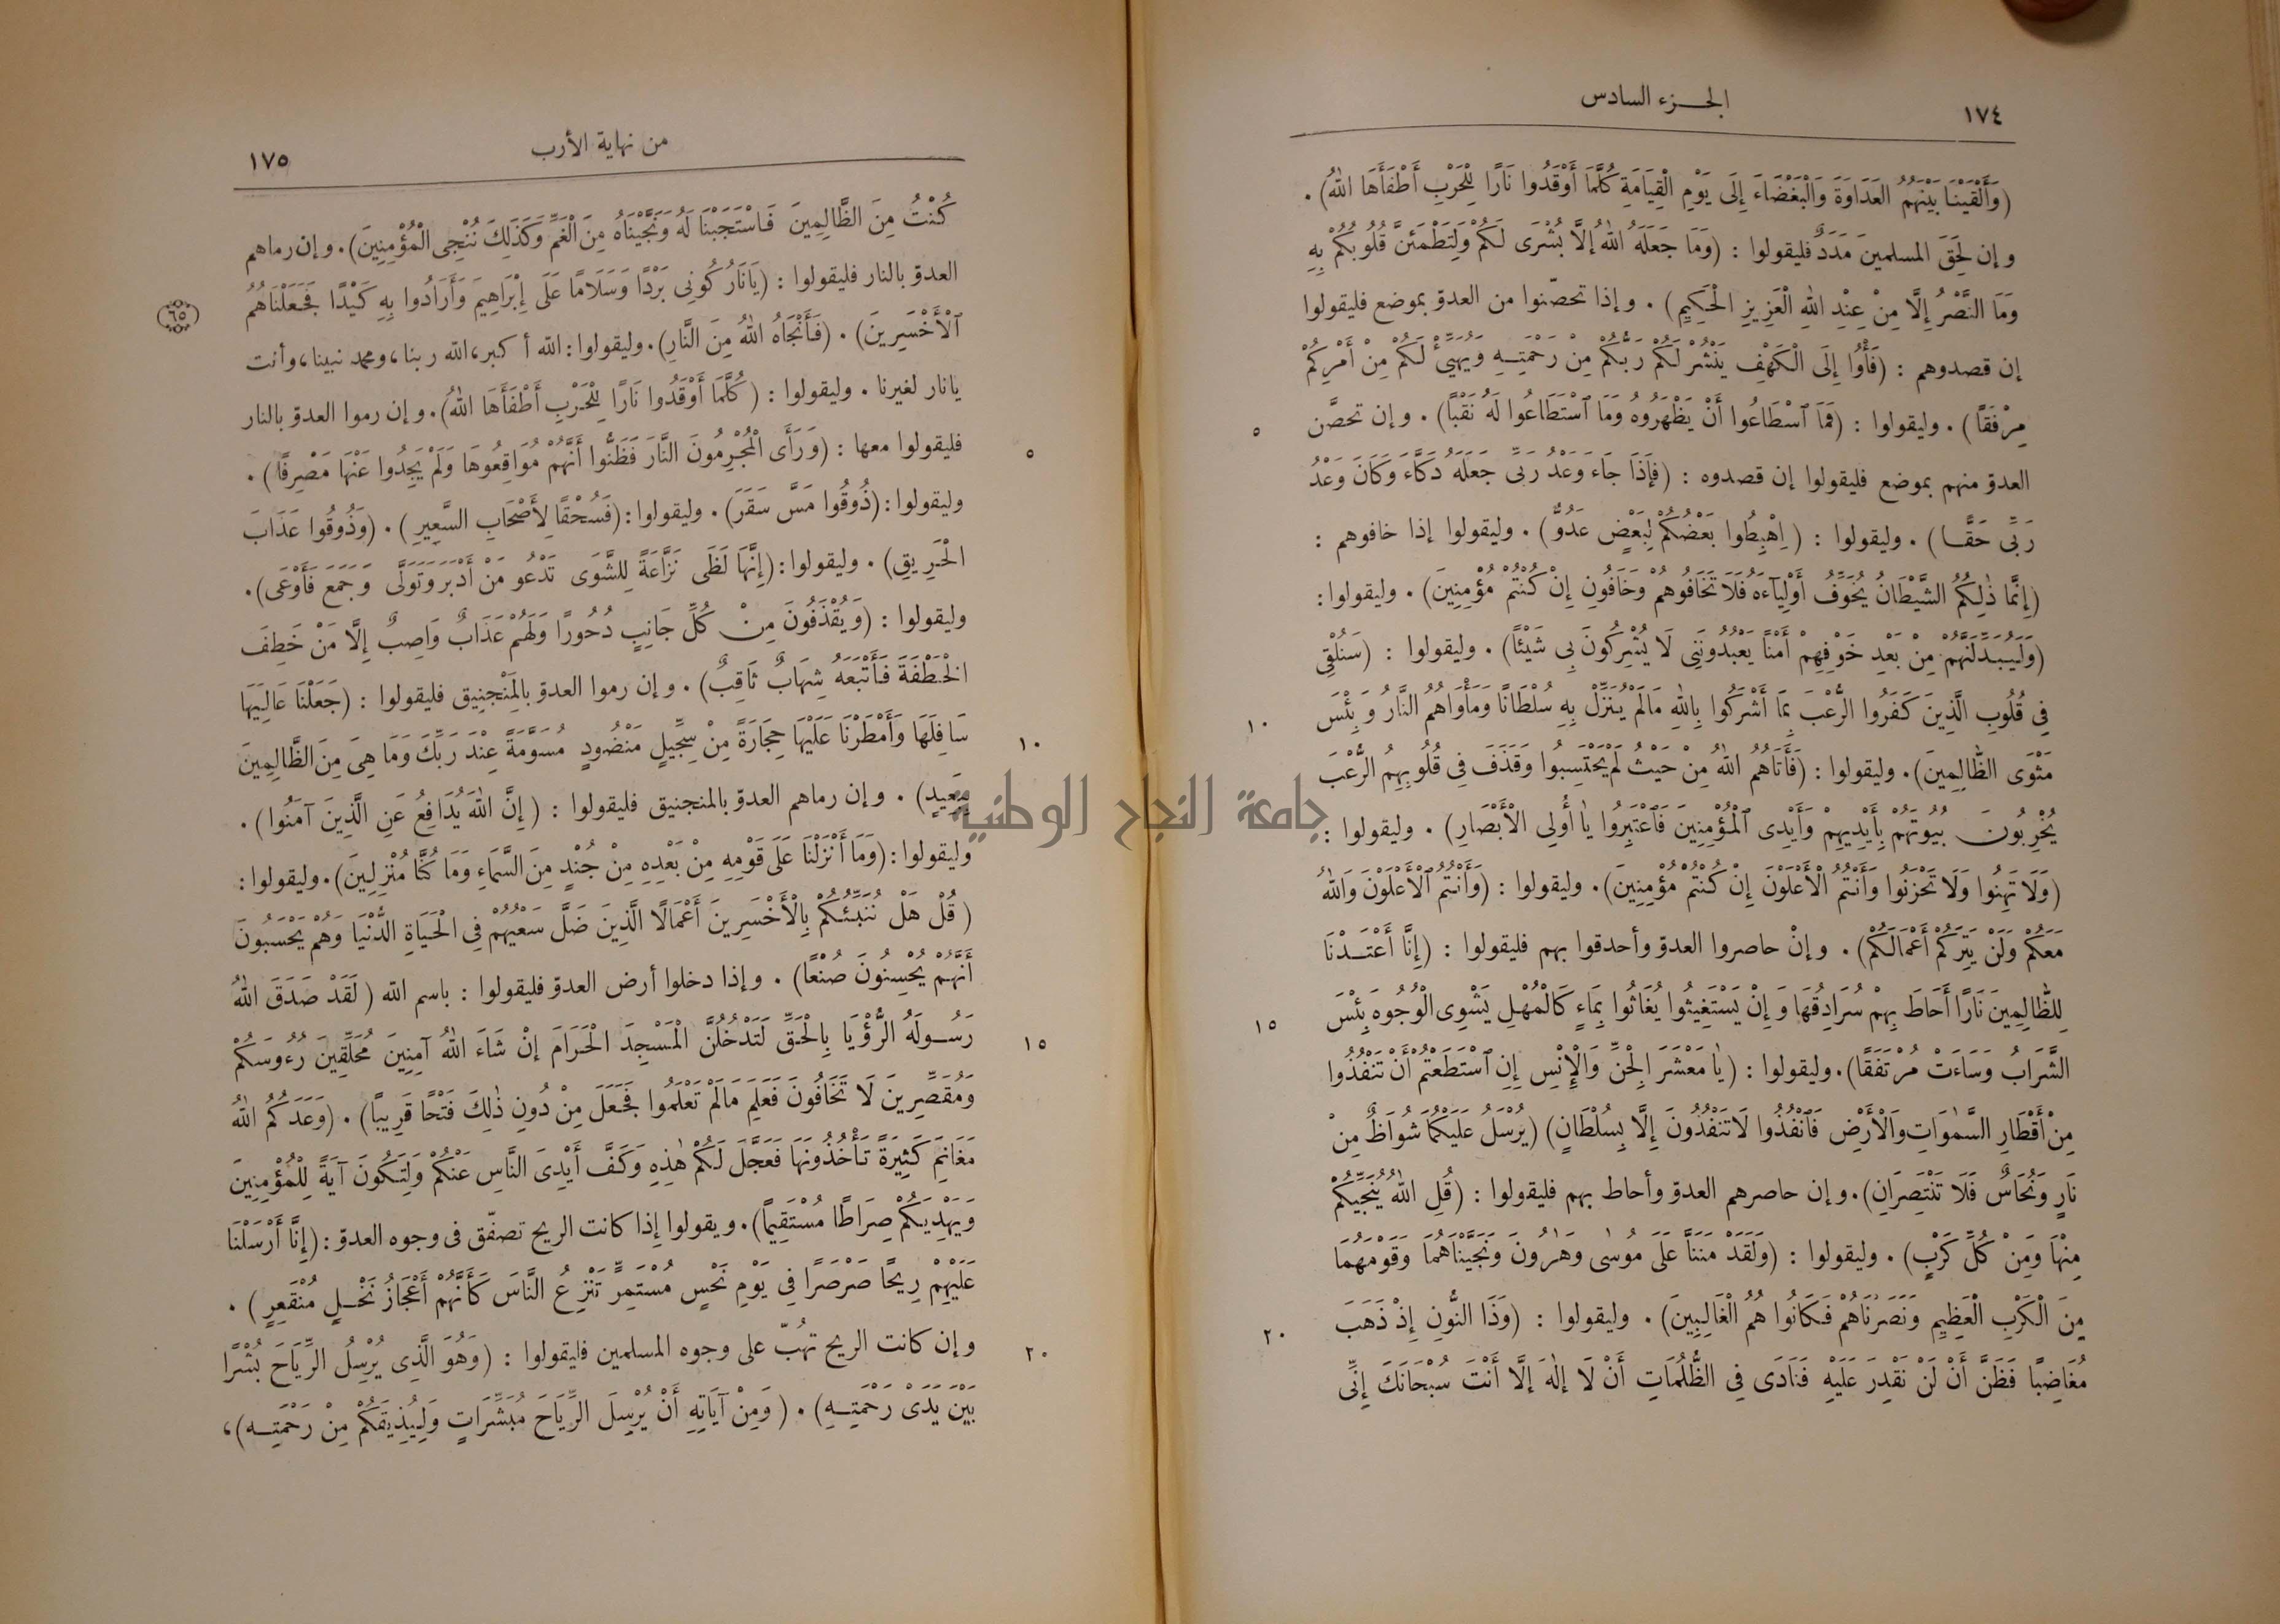 ١٧٤
الجزء السادس
(وَأَلْقَيْنَا بَيْنَهُمُ الْعَدَاوَةَ وَالْبَغْضَاءَ إِلَى يَوْمِ الْقِيَامَةِ كُلَّمَا أَوْقَدُوا نَارًا لِلْحَرْبِ أَطْفَأَهَا اللهُ).
وإن لَحِقَ المسلمينَ مَدَدٌ فليقولوا : (وَمَا جَعَلَهُ اللهُ إِلَّا بُشْرَى لَكُمْ وَلِتَطْمَئِنَّ قُلُوبُكُمْ بِهِ
وَمَا النَّصْرُ إِلَّا مِنْ عِنْدِ اللهِ الْعَزِيزِ الْحَكِيمِ) . وإذا تحصّنوا من العدوّ بموضع فليقولوا
إن قصدوهم : (فَأْوُا إِلَى الْكَهْفِ يَنْشُرْ لَكُمْ رَبُّكُمْ مِنْ رَحْمَتِهِ وَيُهَيِّئْ لَكُمْ مِنْ أَمْرِكُمْ
مِرْفَقًا) . وليقولوا : (فَمَا ٱسْطَاعُوا أَنْ يَظْهَرُوهُ وَمَا ٱسْتَطَاعُوا لَهُ نَقْبًا) . وإن تحصَّن
٥
العدوّ منهم بموضع فليقولوا إن قصدوه : (فَإِذَا جَاءَ وَعْدُ رَبِّى جَعَلَهُ دَكَّاءَ وَكَانَ وَعْدُ
رَبِّى حَقًّا) . وليقولوا : (اِهْبِطُوا بَعْضُكُمْ لِبَعْضٍ عَدُوٌّ) . وليقولوا إذا خافوهم :
(إِنَّمَا ذٰلِكُمُ الشَّيْطَانُ يُخَوِّفُ أَوْلِيَآءَهُ فَلَا تَخَافُوهُمْ وَخَافُونِ إِنْ كُنْتُمْ مُؤْمِنِينَ) . وليقولوا:
(وَلَيُبَدِّلَنَّهُمْ مِنْ بَعْدِ خَوْفِهِمْ أَمْنًا يَعْبُدُونَنِى لَا يُشْرِكُونَ بِى شَيْئًا) . وليقولوا : (سَنُلْقِى
فِى قُلُوبِ الَّذِينَ كَفَرُوا الرُّعْبَ بِمَا أَشْرَكُوا بِاللهِ مَالَمْ يُنَزِّلْ بِهِ سُلْطَانًا وَمَأْوَاهُمُ النَّارُ وَبِئْسَ
١٠
مَثْوَى الظَّالِمِينَ). وليقولوا : (فَأَتَاهُمُ اللهُ مِنْ حَيْثُ لَمْ يَحْتَسِبُوا وَقَذَفَ فِى قُلُوبِهِمُ الرُّعْبَ
يُخْرِبُونَ بُيُوتَهُمْ بِأَيْدِيهِمْ وَأَيْدِى ٱلْمُؤْمِنِينَ فَاعْتَبِرُوا يٰا أُولِى الْأَبْصَارِ) . وليقولوا :
(وَلَا تَهِنُوا وَلَا تَحْزَنُوا وَأَنْتُمُ الْأَعْلَوْنَ إِنْ كُنْتُمْ مُؤْمِنِينَ). وليقولوا : (وَأَنْتُمُ ٱلْأَعْلَوْنَ وَاللهُ
مَعَكُمْ وَلَنْ يَتِرَكُمْ أَعْمَالَكُمْ) . وإنْ حاصروا العدوّ وأحدقوا بهم فليقولوا : (إِنَّا أَعْتَدْنَا
لِلظَّالِمِينَ نَارًا أَحَاطَ بِهِمْ سُرَادِقُهَا وَإِنْ يَسْتَغِيثُوا يُغَاثُوا بِمَاءٍ كَالْمُهْلِ يَشْوِى الْوُجُوهَ بِئْسَ
١٥
الشَّرَابُ وَسَاءَتْ مُرْتَفَقًا). وليقولوا : (يٰا مَعْشَرَ الْجِنِّ وَالْإِنْسِ إِنِ ٱسْتَطَعْتُمْ أَنْ تَنْفُذُوا
مِنْ أَقْطَارِ السَّمٰوَاتِ وَالْأَرْضِ فَانْفُذُوا لَا تَنْفُذُونَ إِلَّا بِسُلْطَانٍ) (يُرْسَلُ عَلَيْكُمَا شُوَاظٌ مِنْ
نَارٍ وَنُحَاسٌ فَلَا تَنْتَصِرَانِ). وإن حاصرهم العدوّ وأحاط بهم فليقولوا : (قُلِ اللهُ يُنَجِّيكُمْ
مِنْهَا وَمِنْ كُلِّ كَرْبٍ) . وليقولوا : (وَلَقَدْ مَنَنَّا عَلَى مُوسٰى وَهٰرُونَ وَنَجَّيْنَاهُمَا وَقَوْمَهُمَا
مِنَ الْكَرْبِ الْعَظِيمِ وَنَصَرْنَاهُمْ فَكَانُوا هُمُ الْغَالِبِينَ) . وليقولوا : (وَذَا النُّونِ إِذْ ذَهَبَ
٢٠
مُغَاضِبًا فَظَنَّ أَنْ لَنْ نَقْدِرَ عَلَيْهِ فَنَادَى فِى الظُّلُمَاتِ أَنْ لَا إِلٰهَ إِلَّا أَنْتَ سُبْحَانَكَ إِنِّى
من نهاية الأرب
١٧٥
كُنْتُ مِنَ الظَّالِمِينَ فَاسْتَجَبْنَا لَهُ وَنَجَّيْنَاهُ مِنَ الْغَمِّ وَكَذَلِكَ نُنْجِى الْمُؤْمِنِينَ). وإن رماهم
العدوّ بالنار فليقولوا : (يَانَارُ كُونِى بَرْدًا وَسَلَامًا عَلَى إِبْرَاهِيمَ وَأَرَادُوا بِهِ كَيْدًا فَجَعَلْنَاهُمُ
٦٥
ٱلْأَخْسَرِينَ) . (فَأَنْجَاهُ اللهُ مِنَ النَّارِ). وليقولوا: الله أكبر، الله ربنا، ومحمد نبينا، وأنت
يانار لغيرنا . وليقولوا : (كُلَّمَا أَوْقَدُوا نَارًا لِلْحَرْبِ أَطْفَأَهَا اللهُ). وإن رموا العدوّ بالنار
فليقولوا معها : (وَرَأَى الْمُجْرِمُونَ النَّارَ فَظَنُّوا أَنَّهُمْ مُوَاقِعُوهَا وَلَمْ يَجِدُوا عَنْهَا مَصْرِفًا) .
٥
وليقولوا: (ذُوقُوا مَسَّ سَقَرَ). وليقولوا: (فَسُحْقًا لِأَصْحَابِ السَّعِيرِ) . (وَذُوقُوا عَذَابَ
الْحَرِيقِ) . وليقولوا: (إِنَّهَا لَظَى نَزَّاعَةً لِلشَّوَى تَدْعُو مَنْ أَدْبَرَ وَتَوَلَّى وَجَمَعَ فَأَوْعَى).
وليقولوا : (وَيُقْذَفُونَ مِنْ كُلِّ جَانِبٍ دُحُورًا وَلَهُمْ عَذَابٌ وَاصِبٌ إِلَّا مَنْ خَطِفَ
الْخَطْفَةَ فَأَتْبَعَهُ شِهَابٌ ثَاقِبٌ) . وإن رموا العدوّ بالمَنْجنِيق فليقولوا : (جَعَلْنَا عَالِيَهَا
سَافِلَهَا وَأَمْطَرْنَا عَلَيْهَا حِجَارَةً مِنْ سِجِّيلٍ مَنْضُودٍ مُسَوَّمَةً عِنْدَ رَبِّكَ وَمَا هِىَ مِنَ الظَّالِمِينَ
١٠
بِبَعِيدٍ) . وإن رماهم العدوّ بالمنجنيق فليقولوا : (إِنَّ اللهَ يُدَافِعُ عَنِ الَّذِينَ آمَنُوا) .
وليقولوا: (وَمَا أَنْزَلْنَا عَلَى قَوْمِهِ مِنْ بَعْدِهِ مِنْ جُنْدٍ مِنَ السَّمَاءِ وَمَا كُنَّا مُنْزِلِينَ). وليقولوا:
(قُلْ هَلْ نُنَبِّئُكُمْ بِالْأَخْسَرِينَ أَعْمَالًا الَّذِينَ ضَلَّ سَعْيُهُمْ فِى الْحَيَاةِ الدُّنْيَا وَهُمْ يَحْسَبُونَ
أَنَّهُمْ يُحْسِنُونَ صُنْعًا) . وإذا دخلوا أرض العدوّ فليقولوا : باسم الله (لَقَدْ صَدَقَ اللهُ
رَسُولَهُ الرُّؤْيَا بِالْحَقِّ لَتَدْخُلُنَّ الْمَسْجِدَ الْحَرَامَ إِنْ شَاءَ اللهُ آمِنِينَ مُحَلِّقِينَ رُءُوسَكُمْ
١٥
وَمُقَصِّرِينَ لَا تَخَافُونَ فَعَلِمَ مَالَمْ تَعْلَمُوا فَجَعَلَ مِنْ دُونِ ذٰلِكَ فَتْحًا قَرِيبًا) . (وَعَدَكُمُ اللهُ
مَغَانِمَ كَثِيرَةً تَأْخُذُونَهَا فَعَجَّلَ لَكُمْ هٰذِهِ وَكَفَّ أَيْدِىَ النَّاسِ عَنْكُمْ وَلِتَكُونَ آيَةً لِلْمُؤْمِنِينَ
وَيَهْدِيَكُمْ صِرَاطًا مُسْتَقِيمًا). ويقولوا إذا كانت الريح تصفّق فى وجوه العدوّ: (إِنَّا أَرْسَلْنَا
عَلَيْهِمْ رِيحًا صَرْصَرًا فِى يَوْمِ نَحْسٍ مُسْتَمِرٍّ تَنْزِعُ النَّاسَ كَأَنَّهُمْ أَعْجَازُ نَخْلٍ مُنْقَعِرٍ) .
وإن كانت الريح تهُبّ على وجوه المسلمين فليقولوا : (وَهُوَ الَّذِى يُرْسِلُ الرِّيَاحَ بُشْرًا
٢٠
بَيْنَ يَدَىْ رَحْمَتِهِ) . (وَمِنْ آيَاتِهِ أَنْ يُرْسِلَ الرِّيَاحَ مُبَشِّرَاتٍ وَلِيُذِيقَكُمْ مِنْ رَحْمَتِهِ)،
جامعة النجاح الوطنية